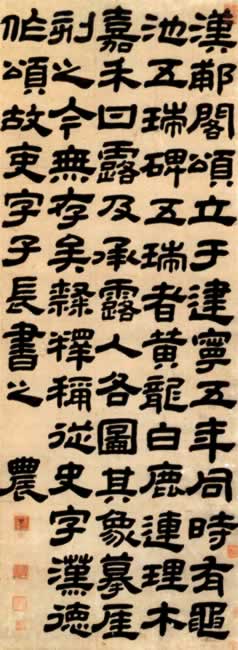 漢郙閣頌立于建寧五年同時有黽
池五瑞碑五瑞者黃龍白鹿連理木
嘉禾甘露及承露人各圖其象摹厓
刻之今無存矣隸釋稱從史字漢德
作頌故吏字子長書之 農